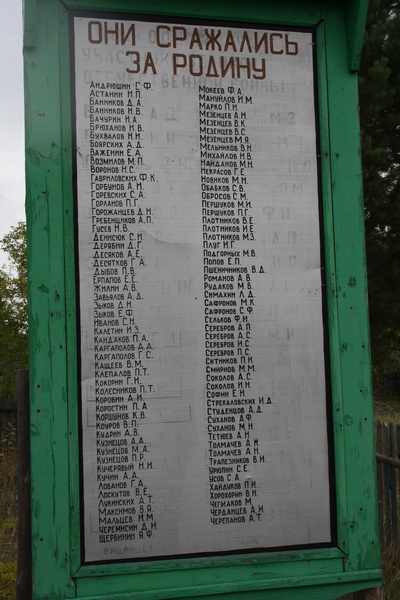 ОНИ СРАЖАЛИСЬ
ЗА РОДИНУ
АНДРЮШИН С.Ф.
АСТАНИН И.П.
БАННИКОВ Д.А.
БАННИКОВ Н.В.
БАЧУРИН И.А.
БРЮХАНОВ И.В.
БУХВАЛОВ Н.И.
БОЯРСКИХ А.Д.
ВАЖЕНИН Е.А.
ВОЗМИЛОВ М.П.
ВОРОНОВ Н.С.
ГАВРИЛОВСКИХ Ф.К.
ГОРБУНОВ А.И.
ГОРЕВСКИХ С.А.
ГОРЛАНОВ П.Г.
ГОРОЖАНЦЕВ Д.Н.
ГРЕБЕНЩИКОВ А.П.
ГУСЕВ Н.В.
ДЕНИСЮК С.И.
ДЕРЯБИН Д.Г.
ДЕСЯКОВ А.Е.
ДЕСЯТКОВ Г.А.
ДЫБОВ П.В.
ЕРПАПОВ Е.Е.
ЖИЛИН А.В.
ЗАВЬЯЛОВ А.Д.
ЗЫКОВ Д.И.
ЗЫКОВ Е.Ф.
ИВАНОВ С.Н.
КАЛЕТИН И.З.
КАНДАКОВ П.А.
КАРГАПОЛОВ А.А.
КАРГАПОЛОВ Г.С.
КАЩЕЕВ В.М.
КЛЕПАЛОВ П.Т.
КОКОРИН Г.И.
КОЛЕСНИКОВ П.Т.
КОРОВИН А.И.
КОРОСТИН П.А.
КОРШУНОВ К.В.
КОУРОВ В.П.
КУДРИН А.В.
КУЗНЕЦОВ А.А.
КУЗНЕЦОВ М.А.
КУЗНЕЦОВ П.Р.
КУЧЕРЯВЫЙ Н.И.
КУЧИН А.А.
ЛОБАНОВ Г.А.
ЛОСКУТОВ В.Е.
ЛУКИНСКИХ А.Т.
МАКСИМОВ В.Я.
МАЛЬЦЕВ И.М.
ЧЕРЕМИСИН Д.И.
ЩЕРБИНИН Я.Ф.
МОКЕЕВ Ф.А.
МАНУЙЛОВ И.М.
МАРКО П.И.
МЕЗЕНЦЕВ А.Н.
МЕЗЕНЦЕВ В.К.
МЕЗЕНЦЕВ В.С.
МЕЗЕНЦЕВ М.Я.
МЕЛЬНИКОВ В.Н.
МИХАЙЛОВ И.В.
НАЙДАНОВ М.Н.
НЕКРАСОВ Г.Е.
НОВИКОВ М.И.
ОБАБКОВ С.В.
ОБРОСОВ С.М.
ПЕРШУКОВ М.И.
ПЕРШУКОВ П.Г.
ПЛОТНИКОВ В.Е.
ПЛОТНИКОВ И.Е.
ПЛОТНИКОВ М.З.
ПЛУГ И.Г.
ПОДГОРНЫХ М.В.
ПОПОВ Е.П.
ПШЕНИЧНИКОВ В.Д.
РОМАНОВ А.В.
РУДАКОВ М.В.
СИМАХИН Л.Д.
САФРОНОВ М.К.
САФРОНОВ С.Ф.
СЕЛЬКОВ Ф.И.
СЕРЕБРОВ А.П.
СЕРЕБРОВ А.С.
СЕРЕБРОВ Н.С.
СЕРЕБРОВ П.С.
СИТНИКОВ П.И.
СМИРНОВ М.М.
СОКОЛОВ А.С.
СОКОЛОВ И.Н.
СОФИН Е.Н.
СТРЕКАЛОВСКИХ И.Д.
СТУДЕНЦОВ А.Д.
СУХАНОВ А.Ф.
СУХАНОВ М.Н.
ТЕТЮЕВ А.Н.
ТОЛМАЧЕВ А.И.
ТОЛМАЧЕВ А.Н.
ТРАПЕЗНИКОВ В.И.
УРЮПИН С.Е.
УСОВ С.А.
ХАЙДУКОВ П.И.
ХОРОХОРИН В.Н.
ЧЕГИЛАКОВ М.
ЧЕРДАНЦЕВ А.И.
ЧЕРЕПАНОВ А.Т.